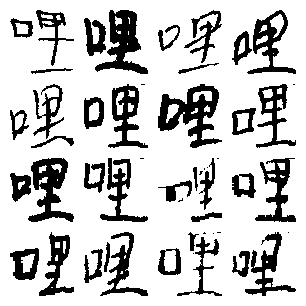 哩哩哩哩
哩哩哩哩
哩哩哩哩
哩哩哩哩